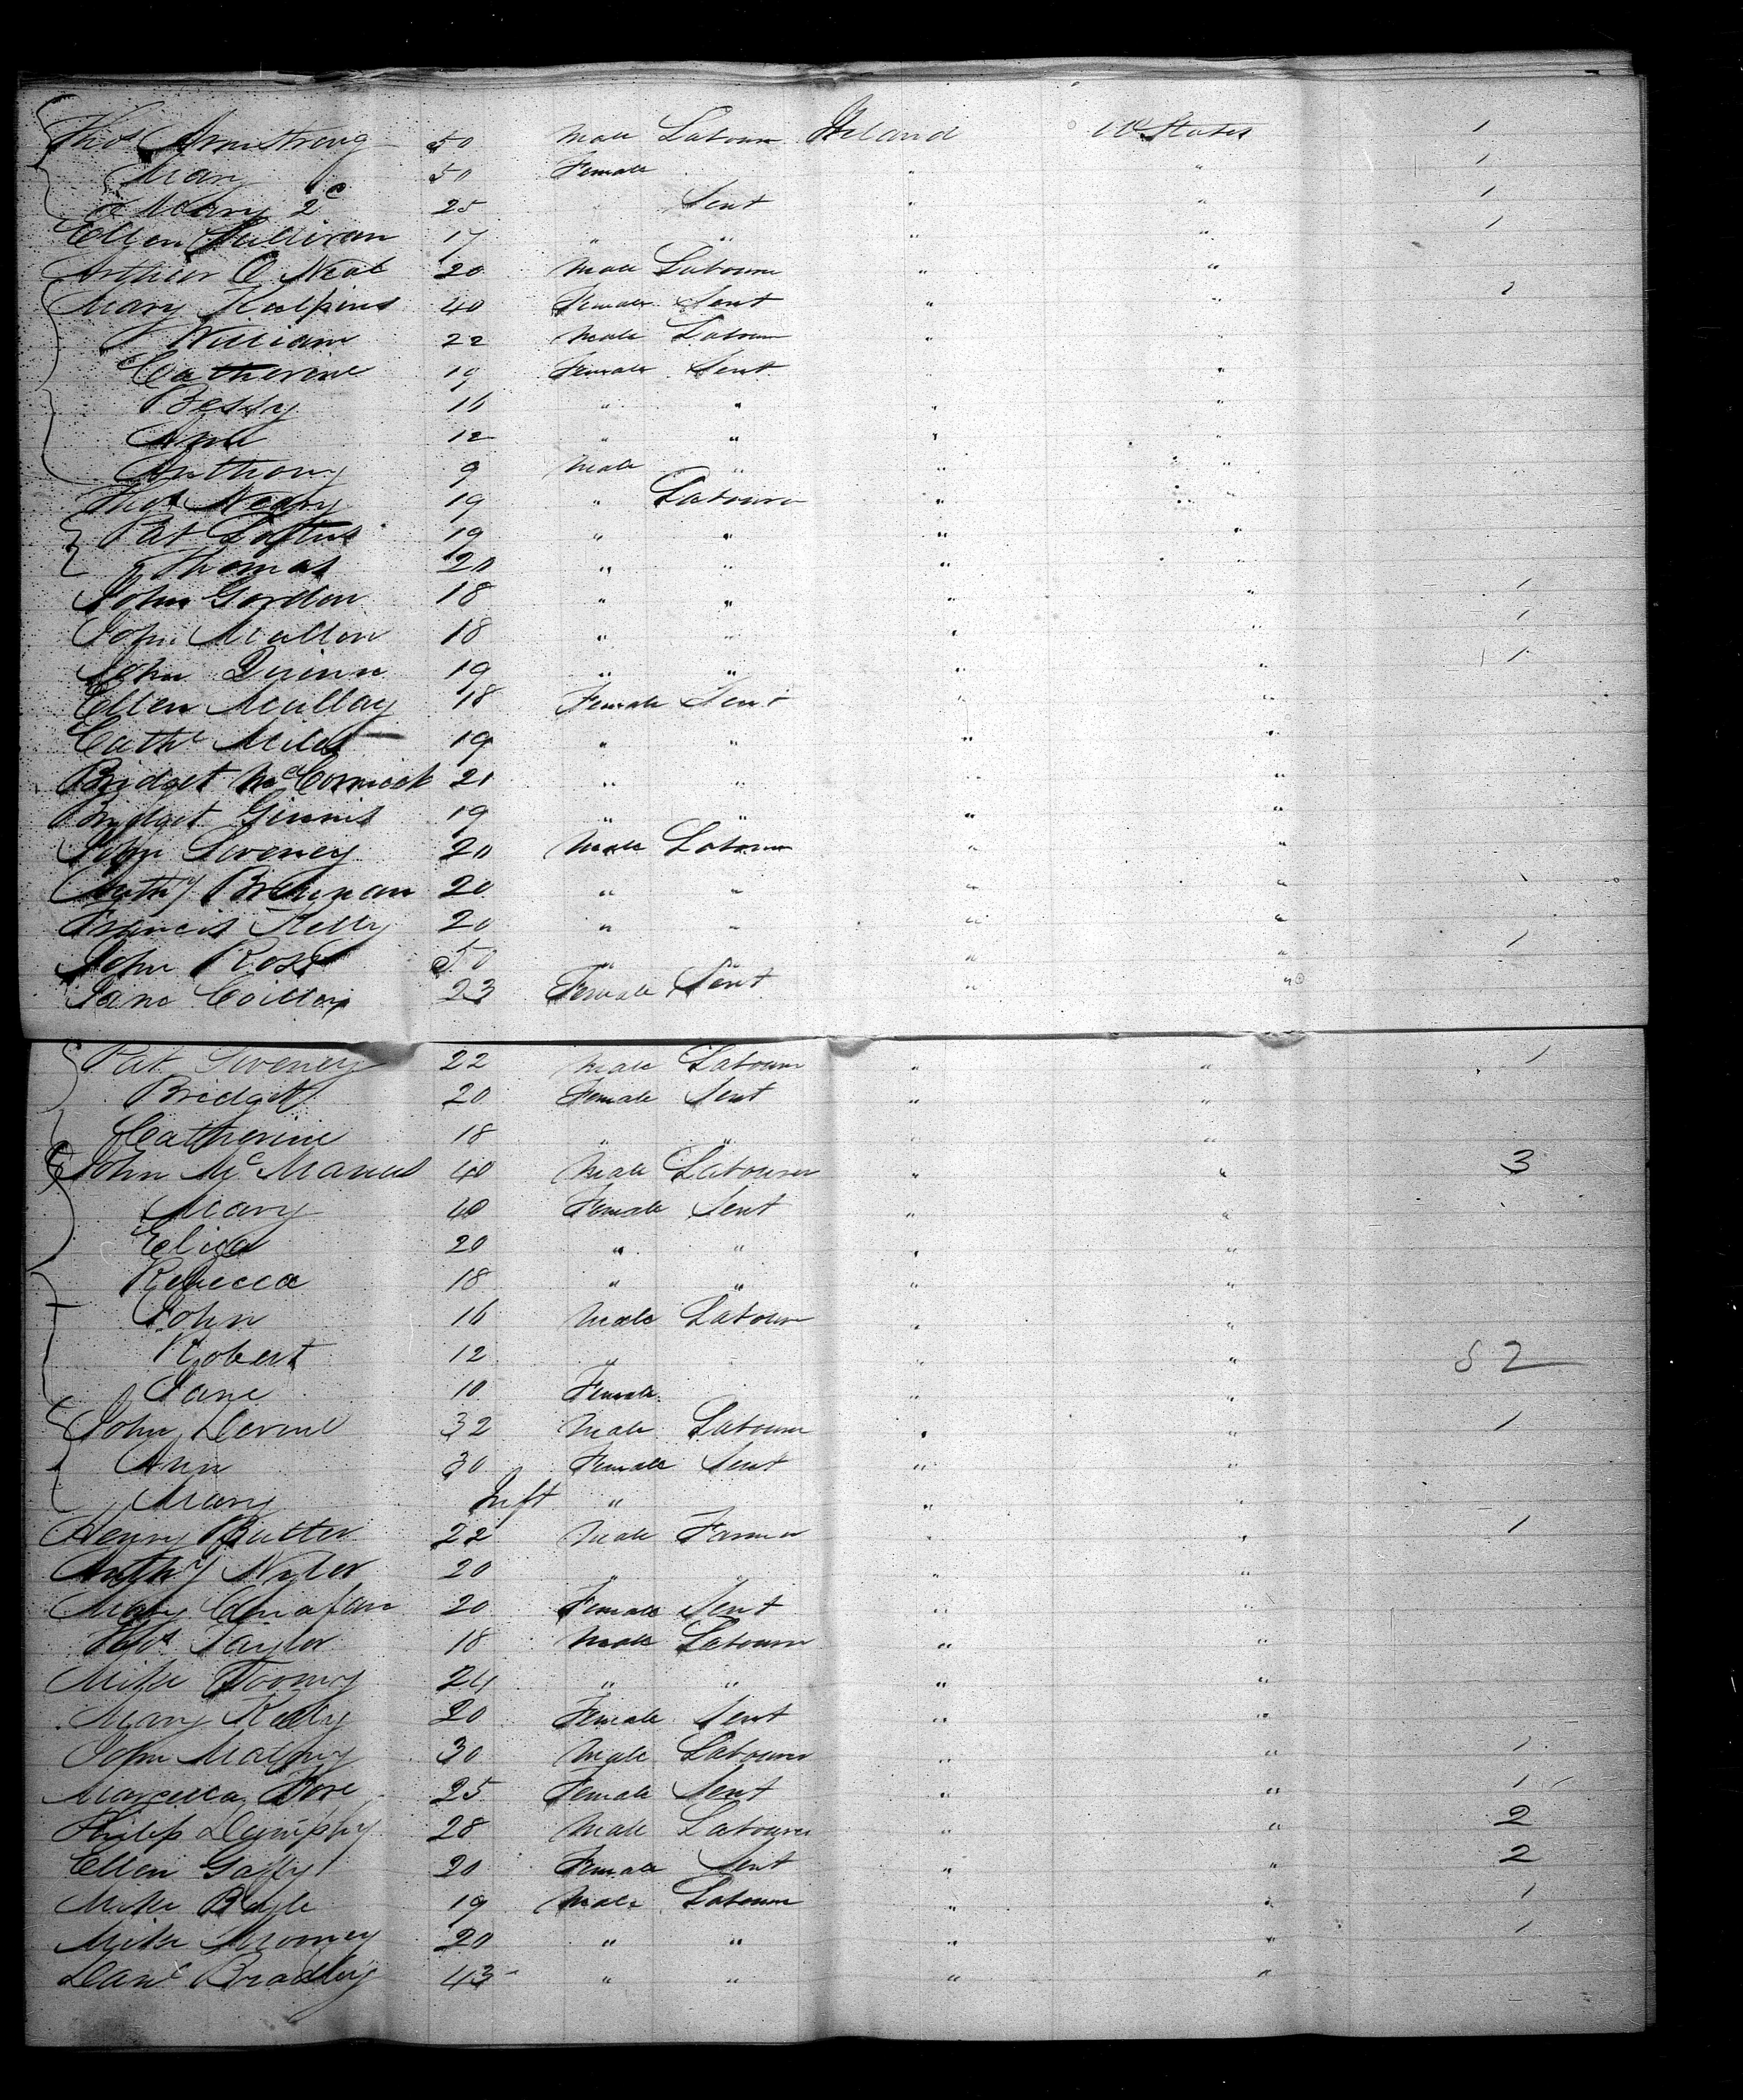 Thos Armstrong 50 Male Labourer Ireland U States 1
Mary 50 Female " " 1
Mary 2d 25 Sevt " " 1
Ellen Sullivan 17 " " " " 1
Arthur O Neal 20 Male Labourer " "
Mary Kilpins 40 Female Sevt " " 1
William 22 Male Labourer " "
Catherine 19 Female Sevt " "
Bessy 16 " " " "
Ann 12 " " " "
Anthony 9 Male " " "
Thos Neary 19 " Labourer " "
Pat Loftus 19 " " " "
Thomas 20 " " " "
John Gordon 18 " " " " 1
John Mallon 18 " " " " 1
John Quinn 19 " " " " 1
Ellen Mullay 18 Female Sevt " "
Cathe Miles 19 " " " "
Bridget McCormick 21 " " " "
Bridget Ginnis 19 " " " "
John Sweney 20 Male Labourer " "
Anthy Brennan 20 " " " "
Francis Kelly 20 " " " "
John Ross 50 " " " " 1
Jane 23 Female Sevt " "
Pat Sweney 22 Male Labourer " " 1
Bridget 20 Female Sevt " "
Catherine 18 " " " "
John McManus 40 Male Labourer " " 3
Mary 40 Female Sevt " "
Eliza 20 " " " "
Rebecca 18 " " " "
John 16 Male Labourer " "
Robert 12 " " " 82
Jane 10 Female " "
John Devine 32 Male Labourer " " 1
Ann 30 Female Sevt " "
Mary Inft " " "
Henry Butler 22 Male Farmer " " 1
Anthy 20 " " " "
Mary 20 Female Sevt " "
Thos Taylor 18 Male Labourer " "
Mike Toomey 24 " " " "
Mary Kelly 20 Female Sevt " "
John Maloney 30 Male Labourer " " 1
25 Female Sevt " " 1
Philip Dumphy 28 Male Labourer " " 2
Ellen Gaffy 20 Female Sevt " " 2
Mike Boyle 19 Male Labourer " " 1
Mike Mooney 20 " " " " 1
Danl Bradley 43 " " " "